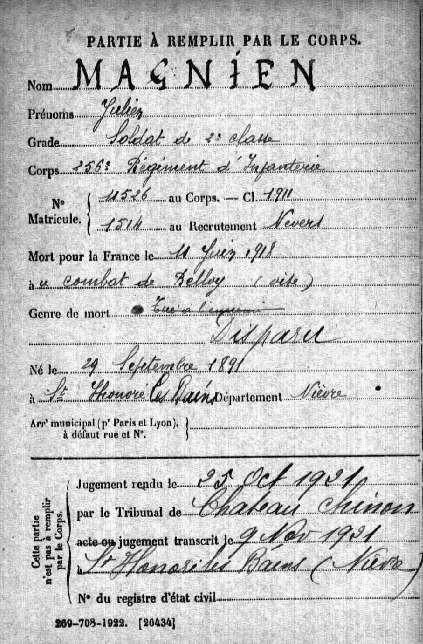 PARTIE À REMPLIR PAR LE CORPS.
Nom MAGNIEN
Prénoms Julien
Grade Soldat de 2e classe
Corps 256e Régiment d'Infanterie
No Matricule. { 11526 au Corps. — Cl. 1911
1514 au Recrutement Nevers
Mort pour la France le 11 Juin 1918
à u combat de Belloy (oise)
Genre de mort Tué à l'ennemi
Disparu
Né le 29 Septembre 1891
à St Honoré les Bains Département Nièvre
Arrt municipal (pr Paris et Lyon), à défaut rue et No. }
Cette partie n'est pas à remplir par le Corps.
Jugement rendu le 25 Oct 1921
par le Tribunal de Chateau Chinon
acte ou jugement transcrit le 9 Nov 1921
à St Honoré les Bains (Nièvre)
No du registre d'état civil
269-708-1922. [26434]